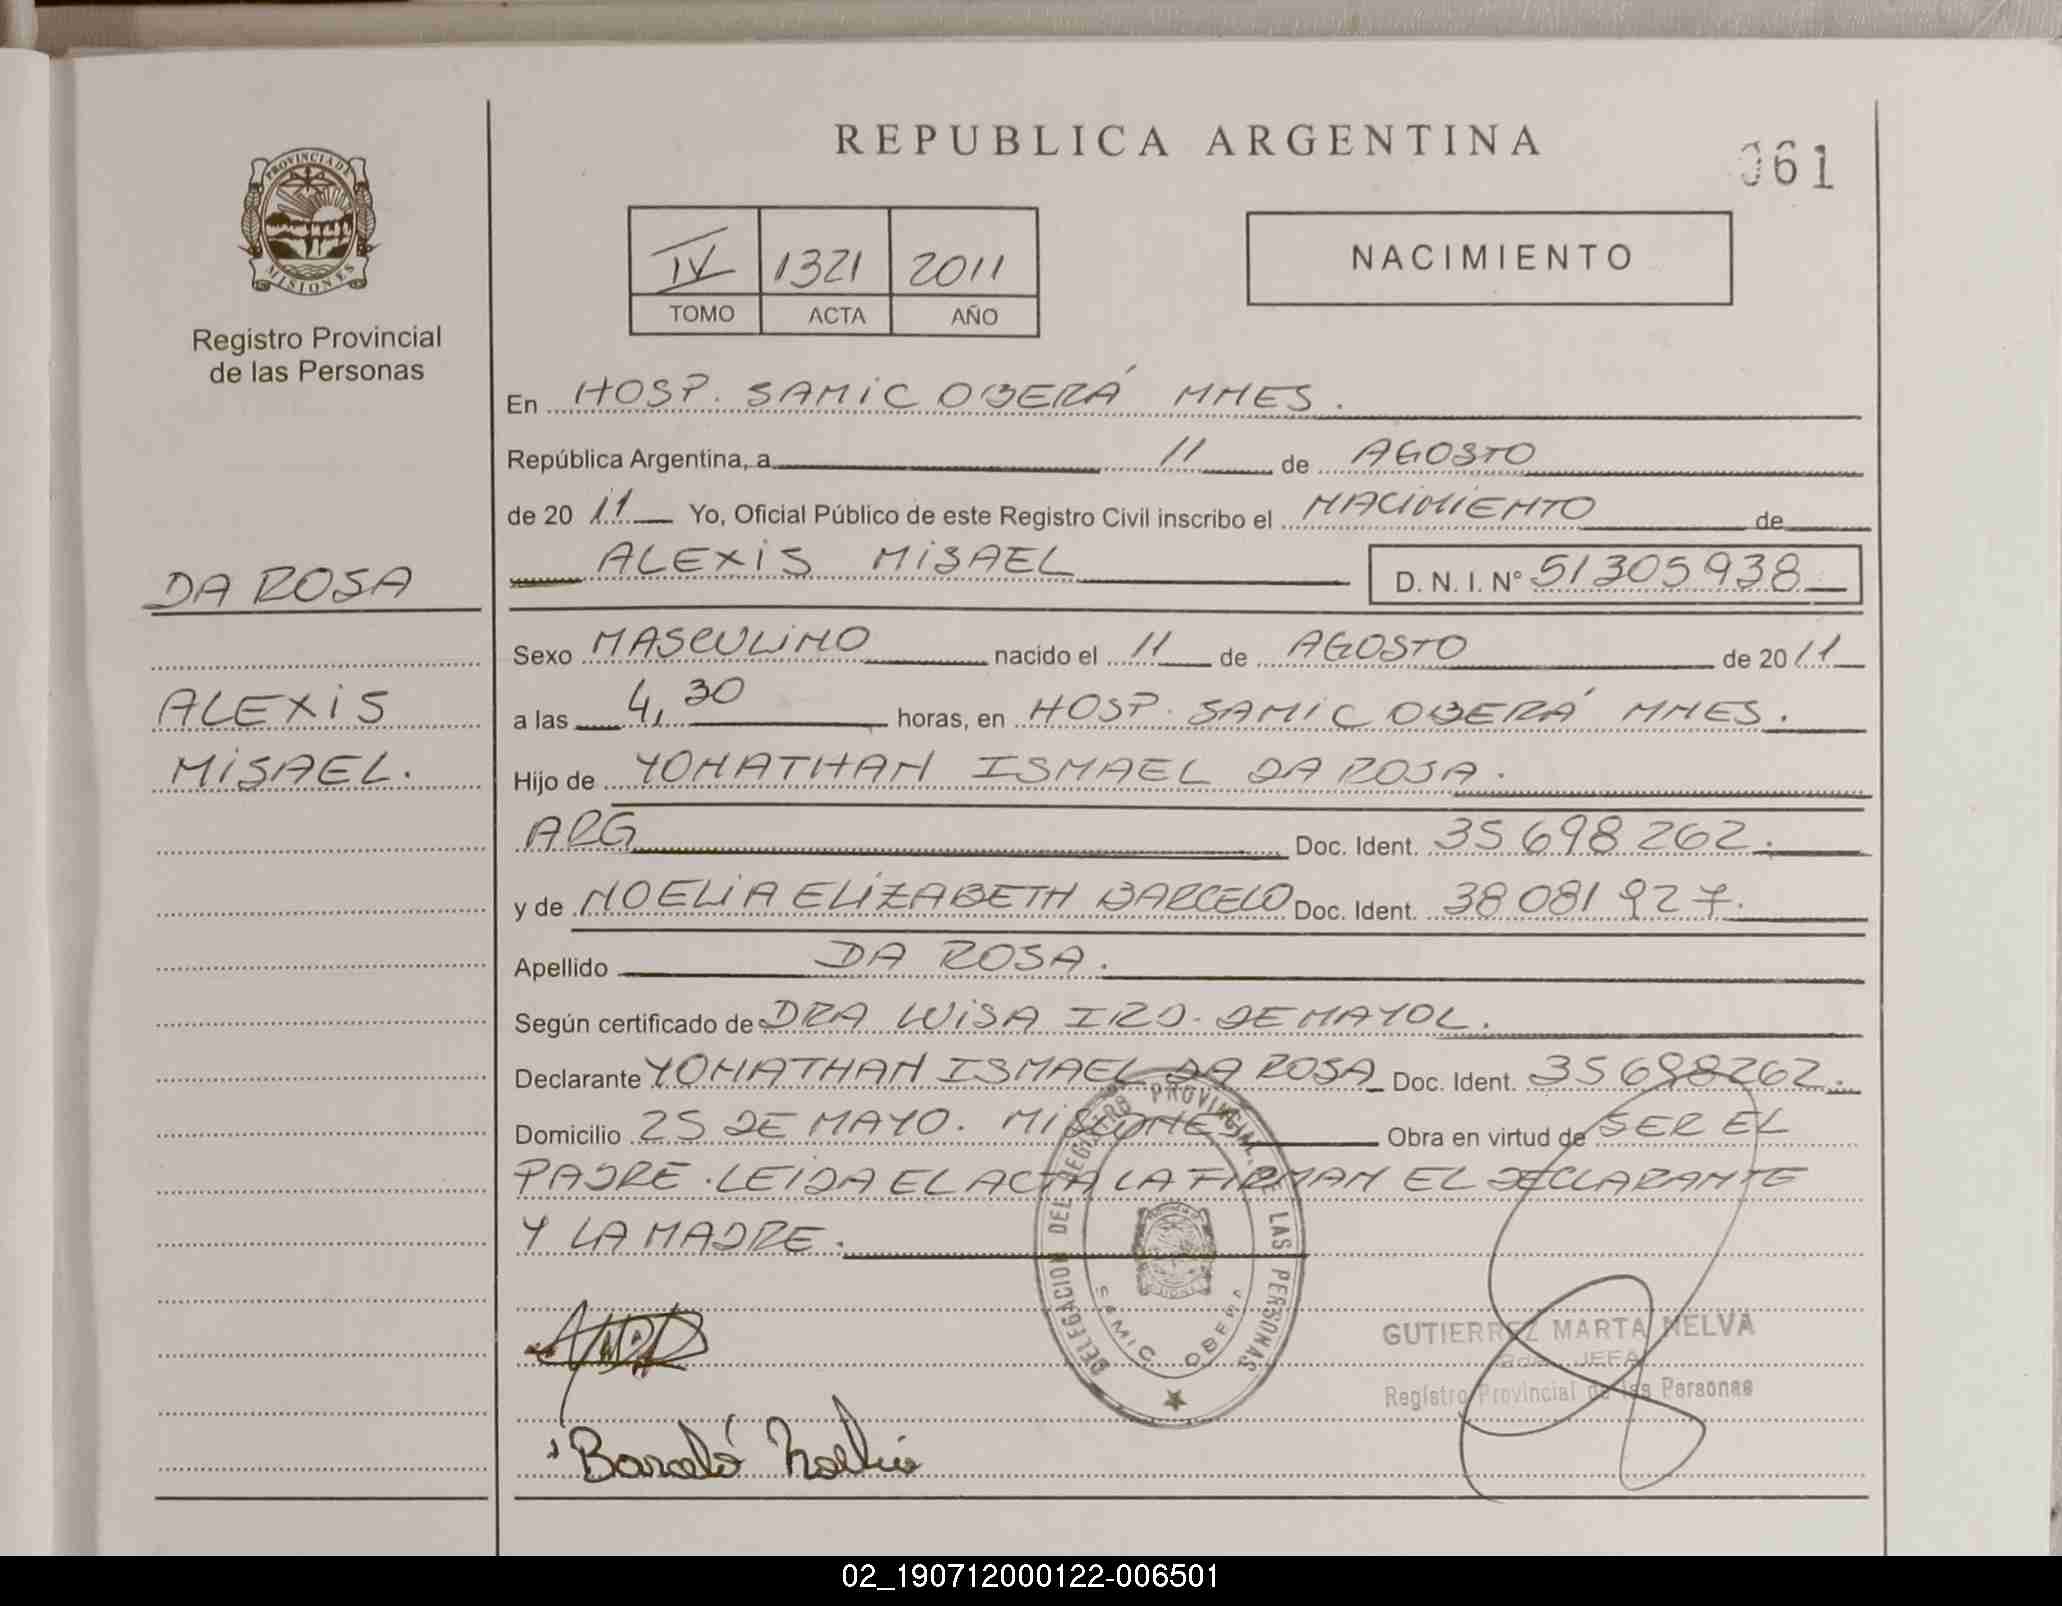 REPUBLICA ARGENTINA
061
PROVINCIA DE
MISIONES
Registro Provincial
de las Personas
IV 1321 2011
TOMO ACTA AÑO
NACIMIENTO
En HOSP. SAMIC OBERÁ MNES.
República Argentina, a 11 de AGOSTO
de 20 11 Yo, Oficial Público de este Registro Civil inscribo el NACIMIENTO de
ALEXIS MISAEL D. N. I. N° 51305938
DA ROSA
ALEXIS
MISAEL.
Sexo MASCULINO nacido el 11 de AGOSTO de 20 11
a las 4,30 horas, en HOSP. SAMIC OBERÁ MNES.
Hijo de YONATHAN ISMAEL DA ROSA.
ARG Doc. Ident. 35698262.
y de NOELIA ELIZABETH BARCELO Doc. Ident. 38081927.
Apellido DA ROSA.
Según certificado de DRA LUISA IRD. DE MAYOL.
Declarante YONATHAN ISMAEL DA ROSA Doc. Ident. 35698262.
Domicilio 25 DE MAYO. MISIONES Obra en virtud de SER EL
PADRE. LEIDA EL ACTA LA FIRMAN EL DECLARANTE
Y LA MADRE.
DELEGACION DEL REGISTRO PROVINCIAL DE LAS PERSONAS
SAMIC OBERA
GUTIERREZ MARTA NELVA
JEFA
Registro Provincial de las Personas
Barceló Noelia
02_190712000122-006501